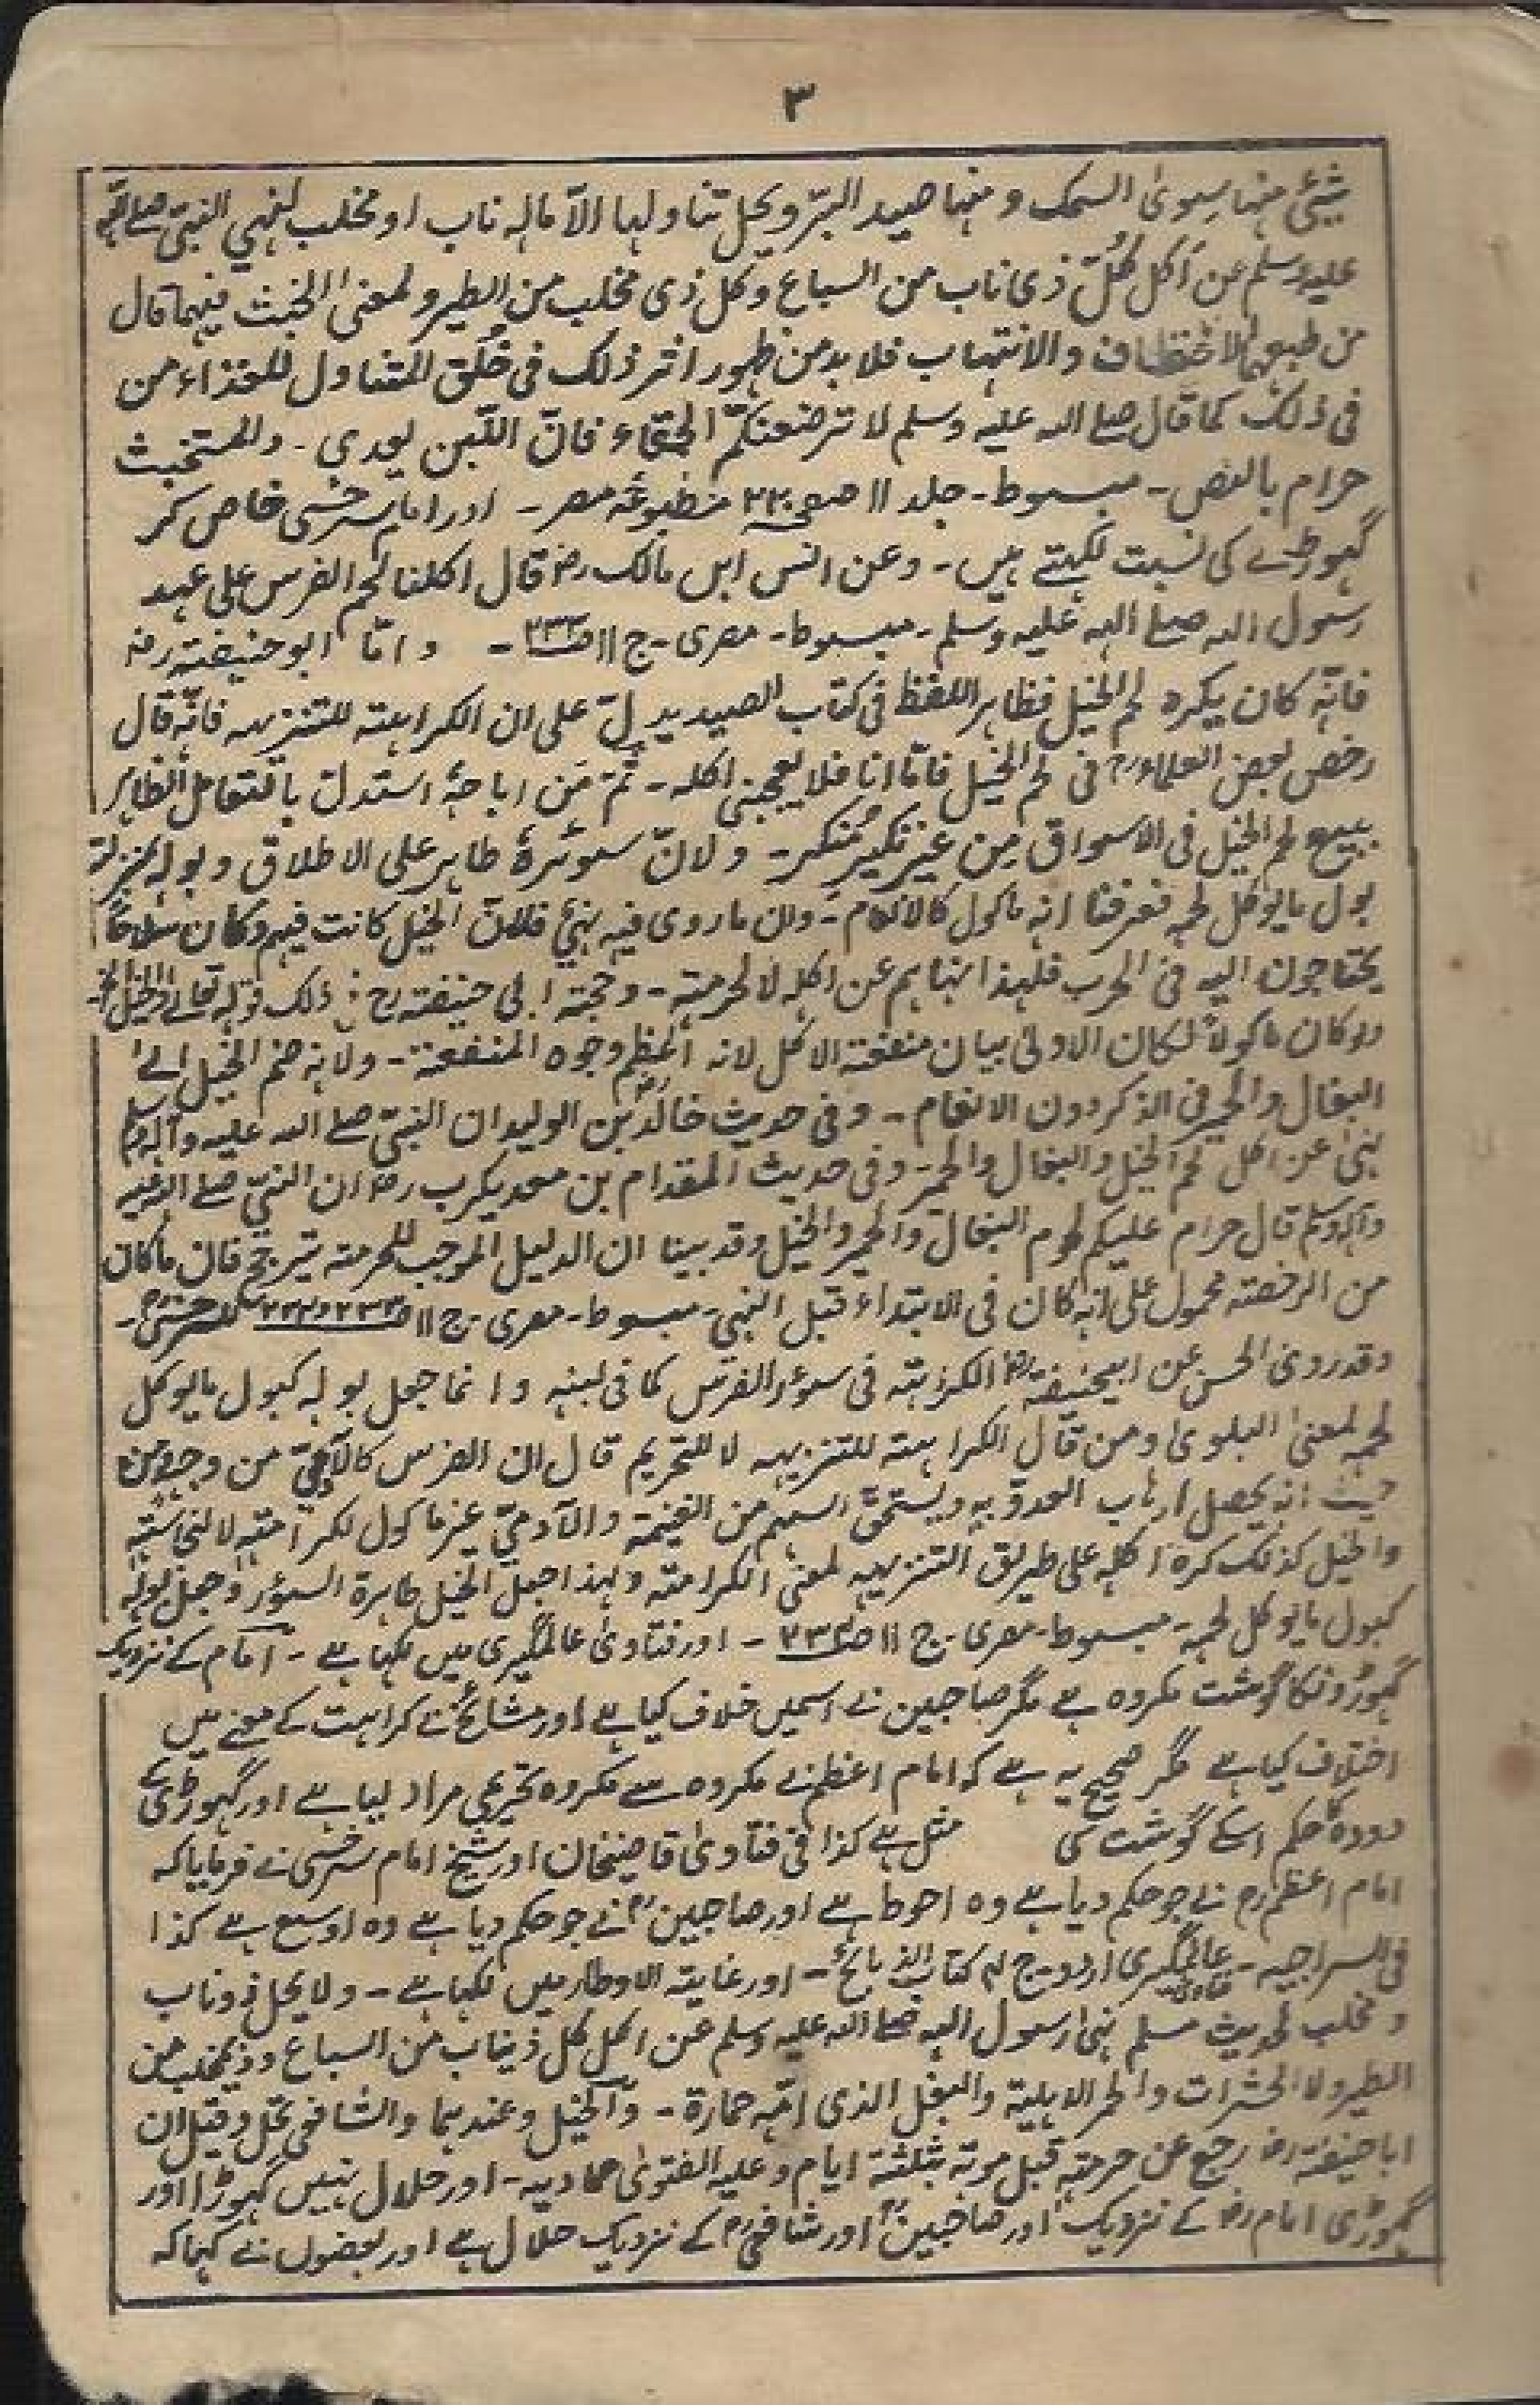 ۳
شیئ منہا سوی السمک و منہا صید البرّ و یحل تناولہا الّا مالہ ناب او مخلب لنہی النبّی صلے اللّٰہ
علیہ وسلم عن اکل کُلّ ذی ناب من السباع وکل ذی مخلب من الطیر و لمعنی الخبث فیہما قال
من طبعہما الاختطاف والانتہاب فلا بد من ظہور اثر ذلک فی خُلق المتناول للغذاء من
فی ذلک کما قال صلے اللہ علیہ وسلم لا ترضعنکمّ الحمقاء فانّ اللّبن یعدی ۔ والمستخبث
حرام بالنص ۔ مبسوط ۔ جلد ۱۱ صفحہ ۲۲۰ مطبوعہ مصر ۔ اور امام سرخسی خاص کر
گھوڑے کی نسبت لکہتے ہیں ۔ وعن انس ابن مالک رض قال اکلنا لحم الفرس علی عہد
رسول اللہ صلے اللہ علیہ وسلم ۔ مبسوط ۔ مصری ۔ ج ۱۱ ص۲۳۳ ۔ و امّا ابو حنیفتہ رض
فانّہ کان یکرہ لحم الخیل فظاہر اللفظ فی کتاب الصید یدلّ علی ان الکراہتہ للتنزیہ فانّہ قال
رخص بعض العلماء رح فی لحم الخیل فامّا انا فلا یعجبنی اکلہ ۔ ثم مَن اباحہٗ استدل بالتعامل الظاہر
ببیع لحم الخیل فی الاسواق مِن غیر نکیر مُنکر ۔ ولانّ سوئرہٗ طاہر علی الاطلاق و بولہ بمنزلۃ
بول مایوکل لحمہ فعرفنا انہ ماکول کالانعام ۔ وان ماروی فیہ نہیٌ فلانّ الخیل کانت فیہم وکان سلاحًا
یحتاجون الیہ فی الحرب فلہذا نہاہم عن اکلہ لا لحرمتہ ۔ وحجتہ ابی حنیفتہ رح فی ذلک قولہ تعالے والخیل الخ ۔
ولوکان ماکولًا لکان الاولیٰ بیان منفعتہ الاکل لانہ اعظم وجوہ المنفعتہ ۔ ولانہ ضم الخیل الے
البغال والحمیر فی الذکر دون الانعام ۔ وفی حدیث خالدؓ بن الولید ان النبّی صلے اللہ علیہ وآلہ وسلم
نہیٰ عن اکل لحم الخیل والبغال والحمر ۔ وفی حدیث المقدام بن معدیکرب رض ان النبیّ صلے اللہ علیہ
وآلہ وسلم قال حرام علیکم لحوم البغال والحمیر والخیل وقد بینا ان الدلیل الموجب للحرمتہ یترجح فان ماکان
من الرخصتہ محمول علی انہٗ کان فی الابتداء قبل النہی ۔ مبسوط ۔ مصری ۔ ج ۱۱ ص ۲۳۳ و ۲۳۴ للسرخسیؒ ۔
وقد روی الحسن عن ابیحنیفتہ رض الکراہتہ فی سوئر الفرس کما فی لبنہ وانما جعل بولہ کبول مایوکل
لحمہ لمعنی البلویٰ ومن قال الکراہتہ للتنزیہہ لا للتحریم قال ان الفرس کالآدمیّ من وجہٍ من
حیث انہ یحصل ارہاب العدوّ بہٖ ویستحق السہم من الغنیمۃ والآدمیّ غیر ماکول لکرامتہٖ لا لنجاستہٖ
والخیل کذلک کرہ اکلہ علی طریق التنزیہہ لمعنی الکرامتہ ولہذا جعل الخیل طاہرۃ السوئر وجعل بولہٗ
کبول مایوکل لحمہ ۔ مبسوط ۔ مصری ۔ ج ۱۱ ص۲۳۴ ۔ اور فتاویٰ عالمگیری میں لکہا ہے ۔ امام کے نزدیک
گہوڑونکا گوشت مکروہ ہے مگر صاحبین نے اسمیں خلاف کیا ہے اور مشائخؒ نے کراہت کے معنے میں
اختلاف کیا ہے مگر صحیح یہ ہے کہ امام اعظم نے مکروہ سے مکروہ تحریمی مراد لیا ہے اور گہوڑی کے
دودہ کا حکم اسکے گوشت کی مثل ہے کذا فی فتاویٰ قاضیخان اور شیخ امام سرخسی نے فرمایا کہ
امام اعظم رح نے جو حکم دیا ہے وہ احوط ہے اور صاحبین رح نے جو حکم دیا ہے وہ اوسع ہے کذا
فی السراجیہ ۔ فتاوی عالمگیری اردو ۔ ج ۴ کتاب الذبائح ۔ اور غایتہ الاوطار میں لکہا ہے ۔ ولا یحل ذو ناب
و مخلب لحدیث مسلم نہیٰ رسول اللہ صلے اللہ علیہ وسلم عن اکل کل ذیناب من السباع وذیمخلب من
الطیر ولا الحشرات والحمر الاہلیۃ والبغل الذی امّہ حمارۃ ۔ والخیل وعندہما والشافعی تحل وقیل ان
اباحنیفۃ رض رجع عن حرمتہٖ قبل موتہ بثلثتہ ایام وعلیہ الفتویٰ عمادیہ ۔ اور حلال نہیں گہوڑا اور
گہوڑی امام رض کے نزدیک اور صاحبین رح اور شافعی رح کے نزدیک حلال ہے اور بعضوں نے کہا کہ